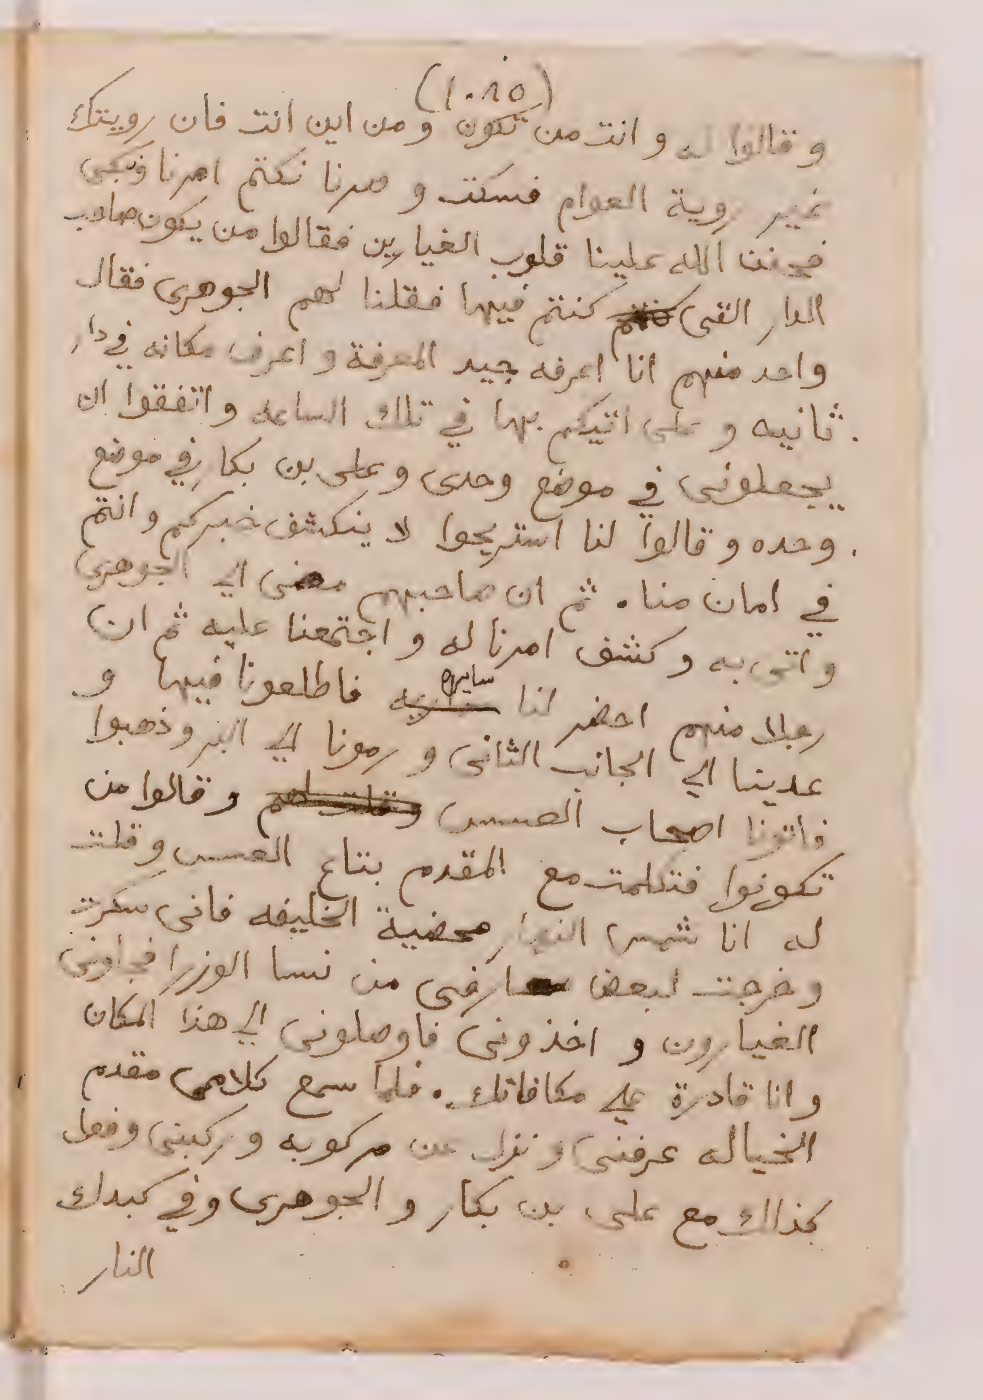 (١٠٨٥)
و قالوا له و انت من تكون و من اين انت فان رويتك
غير روية العوام فسكت و صرنا نكتم امرنا ونبكى
فحنن الله علينا قلوب الغيارين فقالوا من يكون صاحب
الدار التى كنتم كنتم فيها فقلنا لهم الجوهرى فقال
واحد منهم انا اعرفه جيد المعرفة و اعرف مكانه في دار
ثانيه و على اتيكم بها في تلك الساعه و اتفقوا ان
يجعلونى في موضع وحدى و على بن بكار في موضع
وحده و قالوا لنا استريحوا لا ينكشف خبركم و انتم
في امان منا . ثم ان صاحبهم مضى الي الجوهرى
و اتى به و كشف امرنا له و اجتمعنا عليه ثم ان
رجلا منهم احضر لنا سايره فاطلعونا فيها و
عدينا الي الجانب الثانى و رمونا الي البر و ذهبوا
فاتونا اصحاب العسس وقلت لهم و قالوا من
تكونوا فتكلمت مع المقدم بتاع العسس و قلت
له انا شمس النهار محضية الخليفه فانى سكرت
و خرجت لبعض معارفى من نسا الوزرا فجاونى
الغيارون و اخذونى فاوصلونى الي هذا المكان
و انا قادرة علي مكافاتك . فلما سمع كلامى مقدم
الخياله عرفنى و نزل عن مركوبه و ركبنى و فعل
كذالك مع على بن بكار و الجوهرى و في كبدك
النار